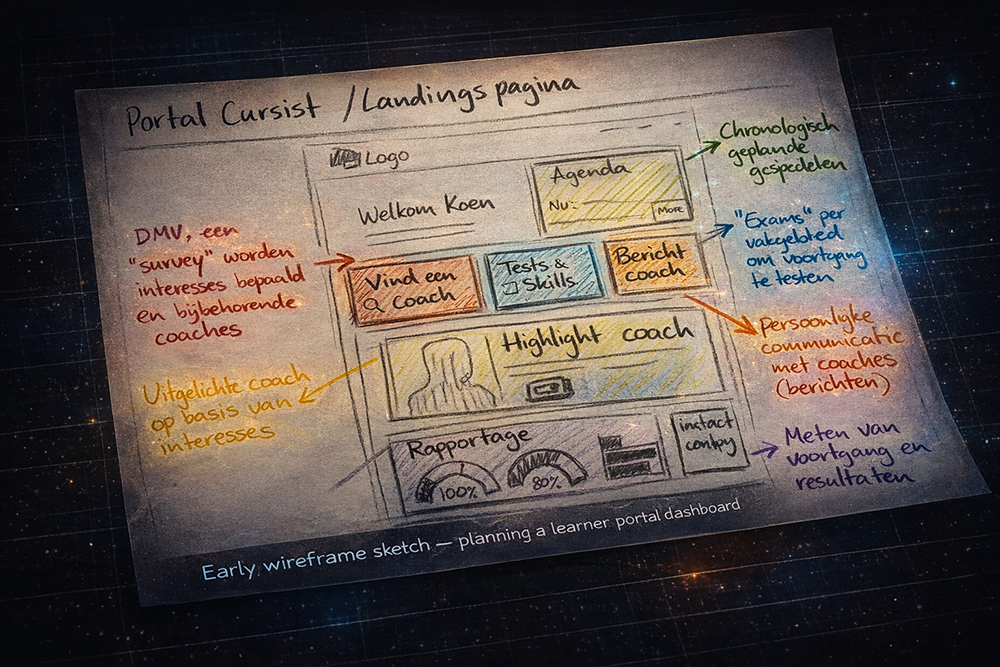 Portal Cursist / Landings pagina
Logo
Welkom Koen
Agenda
Nu:
More
Vind een
Coach
Tests &
Skills
Bericht
coach
Highlight coach
Rapportage
100%
80%
instact
contpy
DMV, een
"survey" worden
interesses bepaald
en bijbehorende
coaches
Uitgelichte coach
op basis van
interesses
Chronologisch
geplande
gcspedelen
"Exams" per
vakgebted
om voortgang
te testen
Persoonlijke
communicatie
met coaches
(berichten)
Meten van
voortgang en
resultaten
Early wireframe sketch — planning a learner portal dashboard